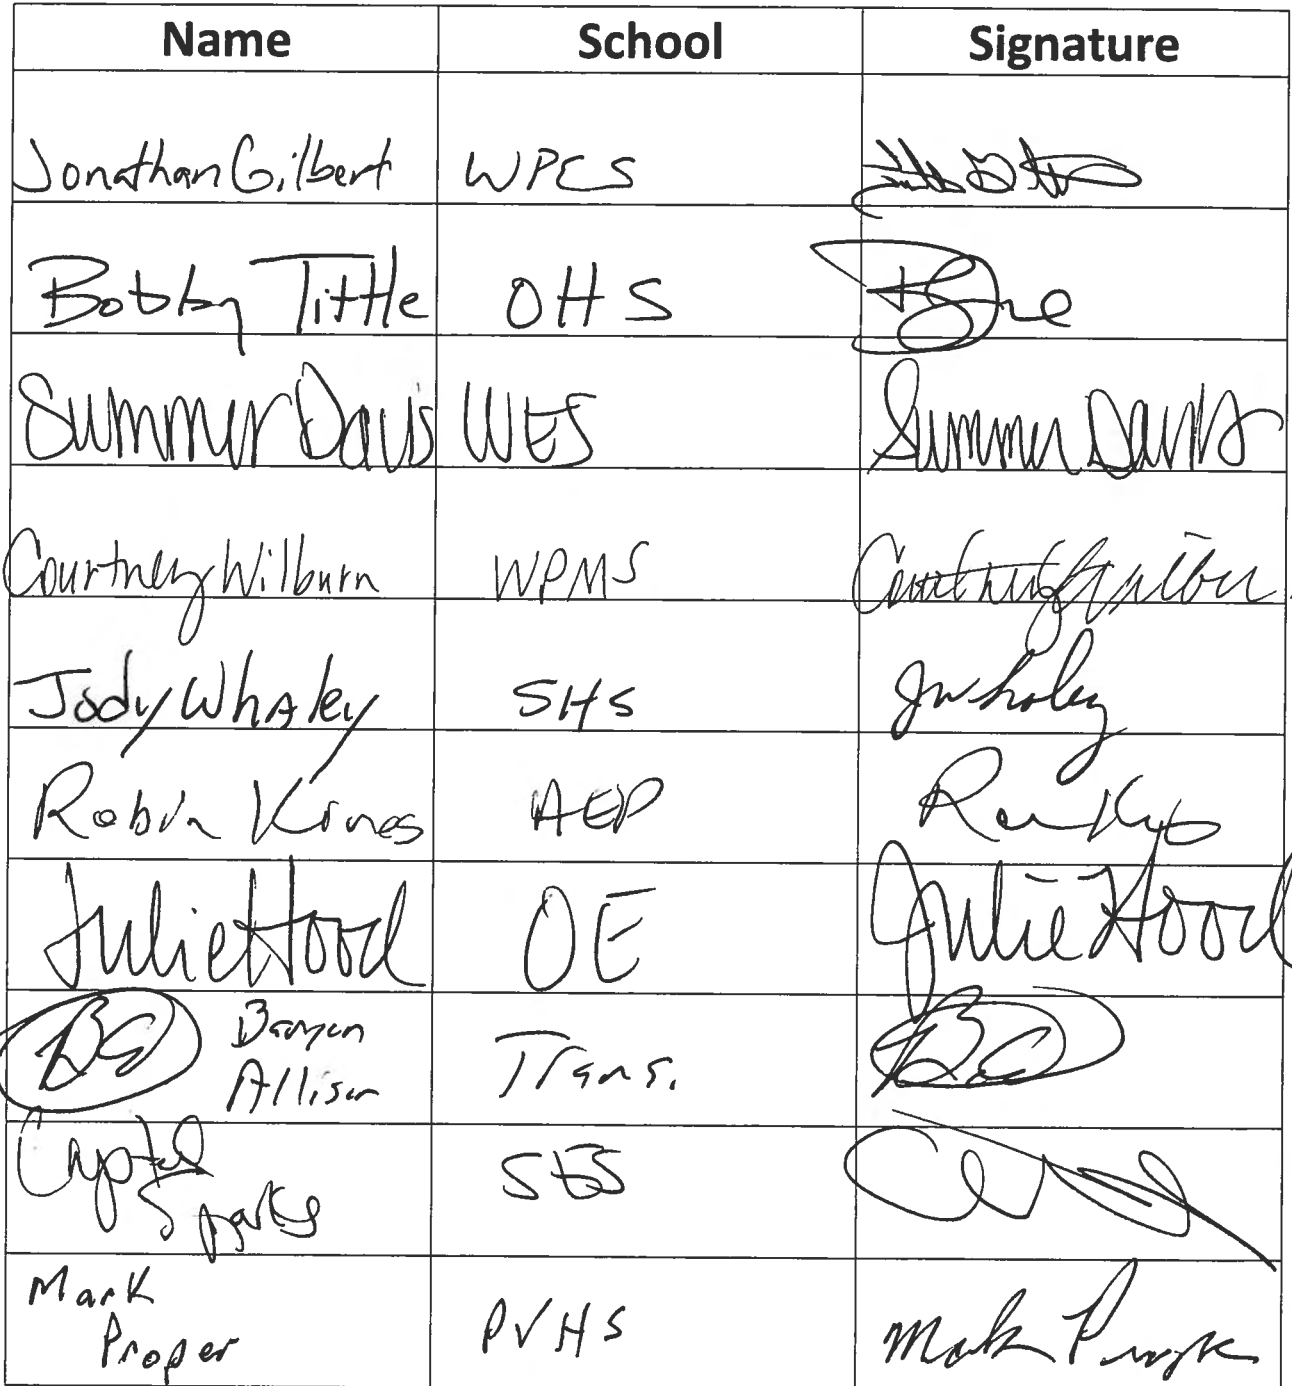 Name School Signature
Jonathan Gilbert WPES
Bobby Tittle OHS
Summer Davis WES Summer Davis
Courtney Wilburn WPMS Courtney Wilburn
Jody Whaley SHS JWhaley
Robin Kines AEP
Julie Hood OE Julie Hood
Bamyon
Allison Trans.
Crystal
Sparks SES
Mark
Proper PVHS Mark Proper